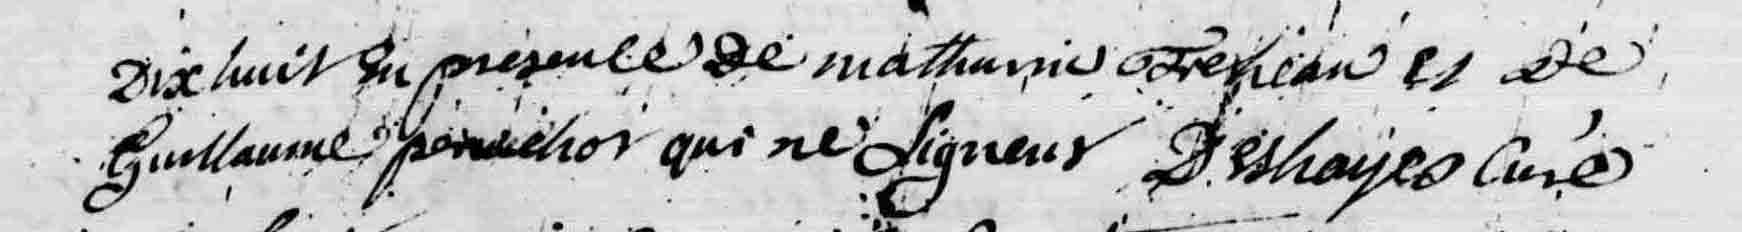 Dix huit En présence De mathurin Trehëan et De
Guillaume qui ne Signent Deshayes Curé